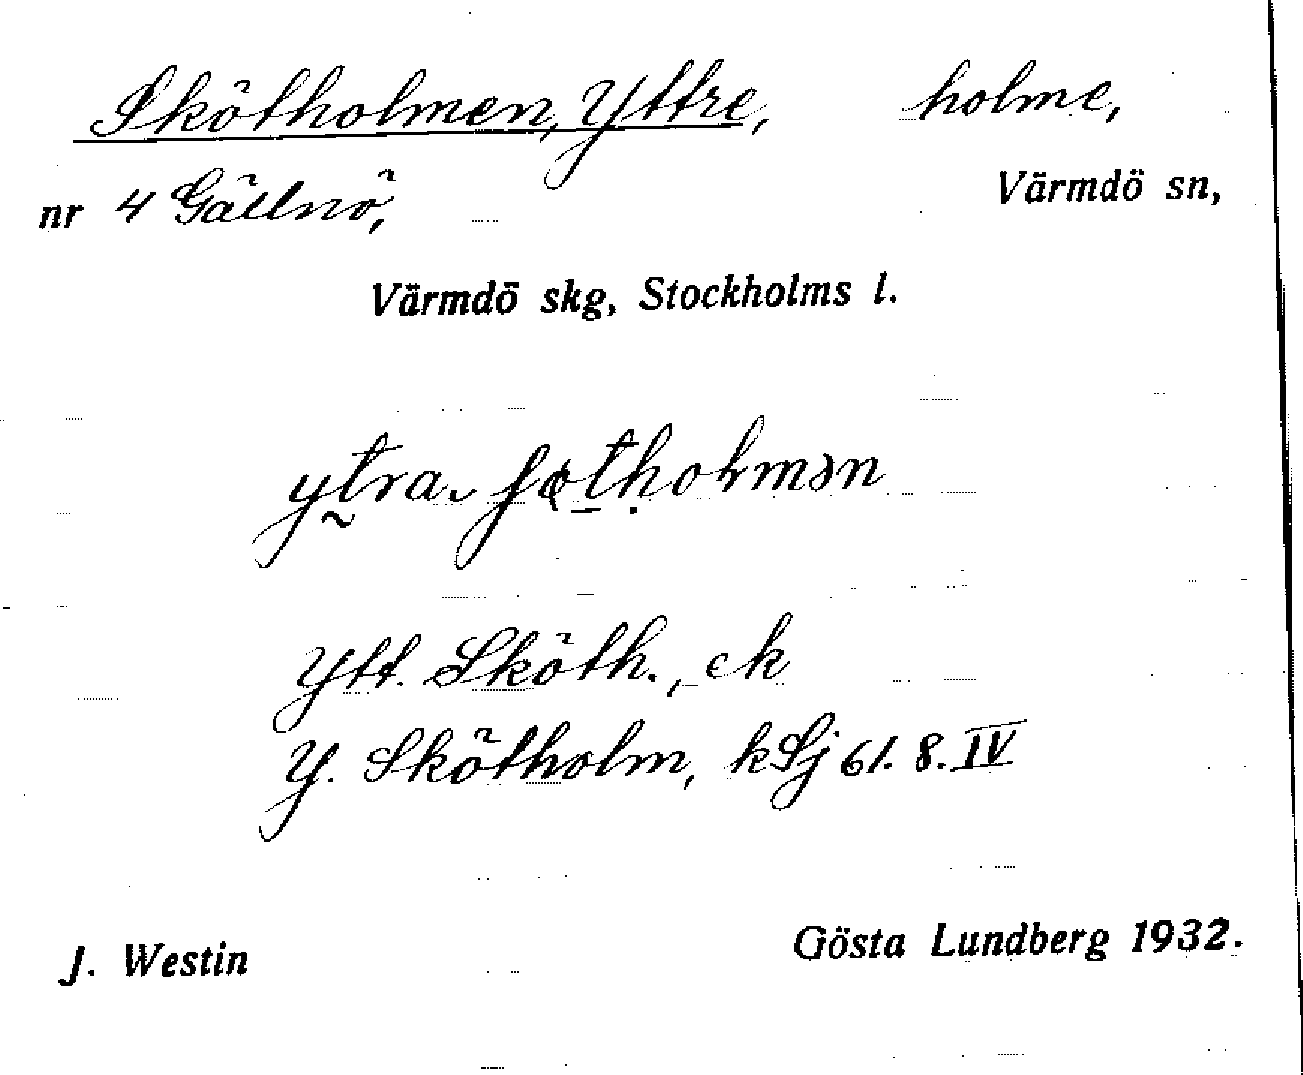 Skötholmen, Yttre, holme,
nr 4 Gällnö, Värmdö sn,
Värmdö skg, Stockholms l.
ytra
Ytt. Sköth., ek
Y. Skötholm, kSj 61. 8. IV
J. Westin Gösta Lundberg 1932.